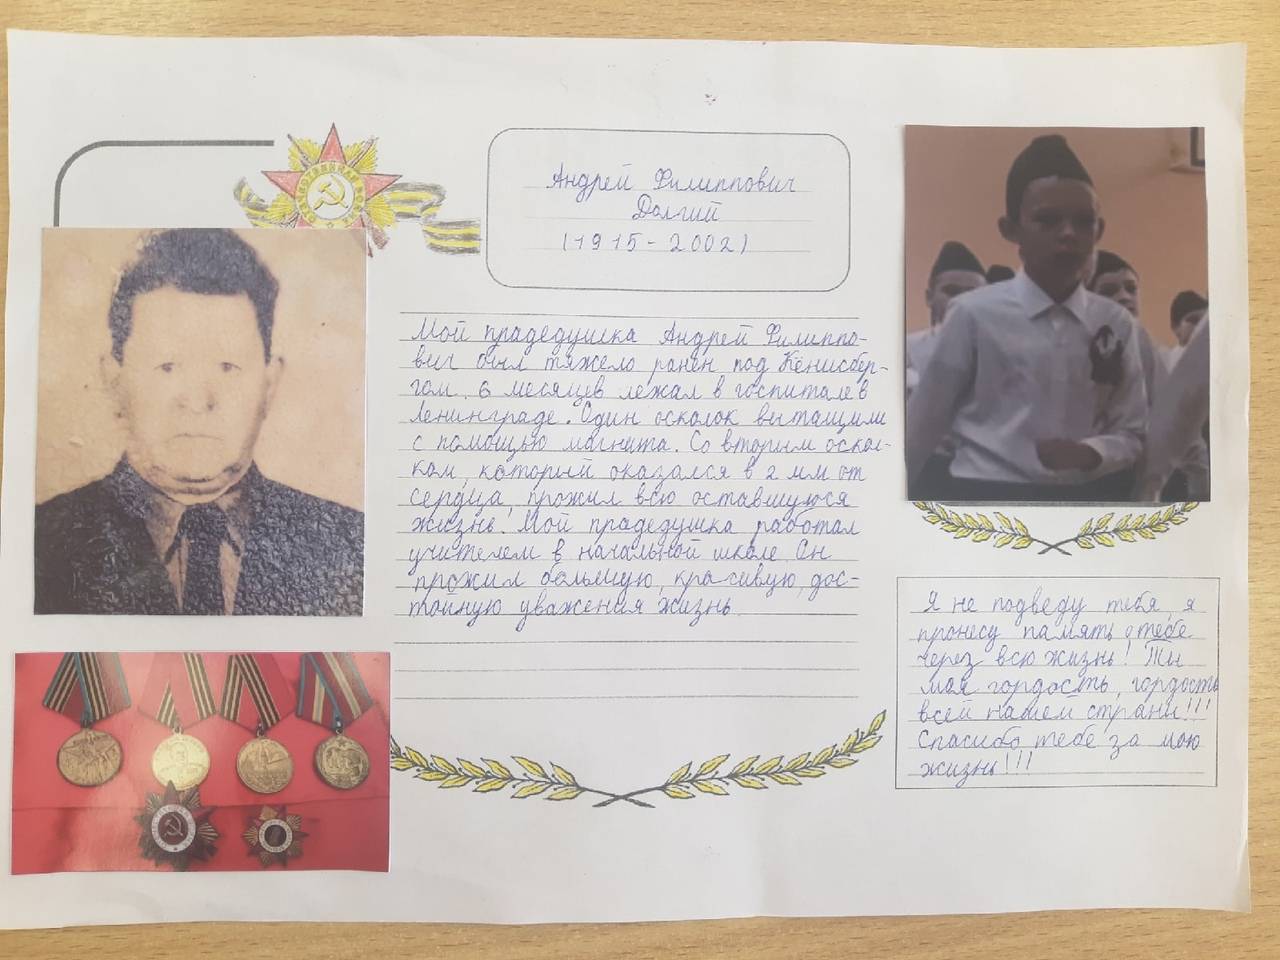 Андрей Филиппович
Долгий
(1915-2002)
Мой прадедушка Андрей Филиппо-
вич был тяжело ранен под Кёнисбер-
гом. 6 месяцев лежал в госпитале в
Ленинграде. Один осколок вытащили
с помощью магнита. Со вторым оскол-
ком, который оказался в 2 мм от
сердца, прожил всю оставшуюся
жизнь. Мой прадедушка работал
учителем в начальной школе. Он
прожил большую, красивую, дос-
тойную уважения жизнь.
Я не подведу тебя, я
пронесу память о тебе
через всю жизнь! Ты
моя гордость, гордость
всей нашей страны!!!
Спасибо тебе за мою
жизнь!!!